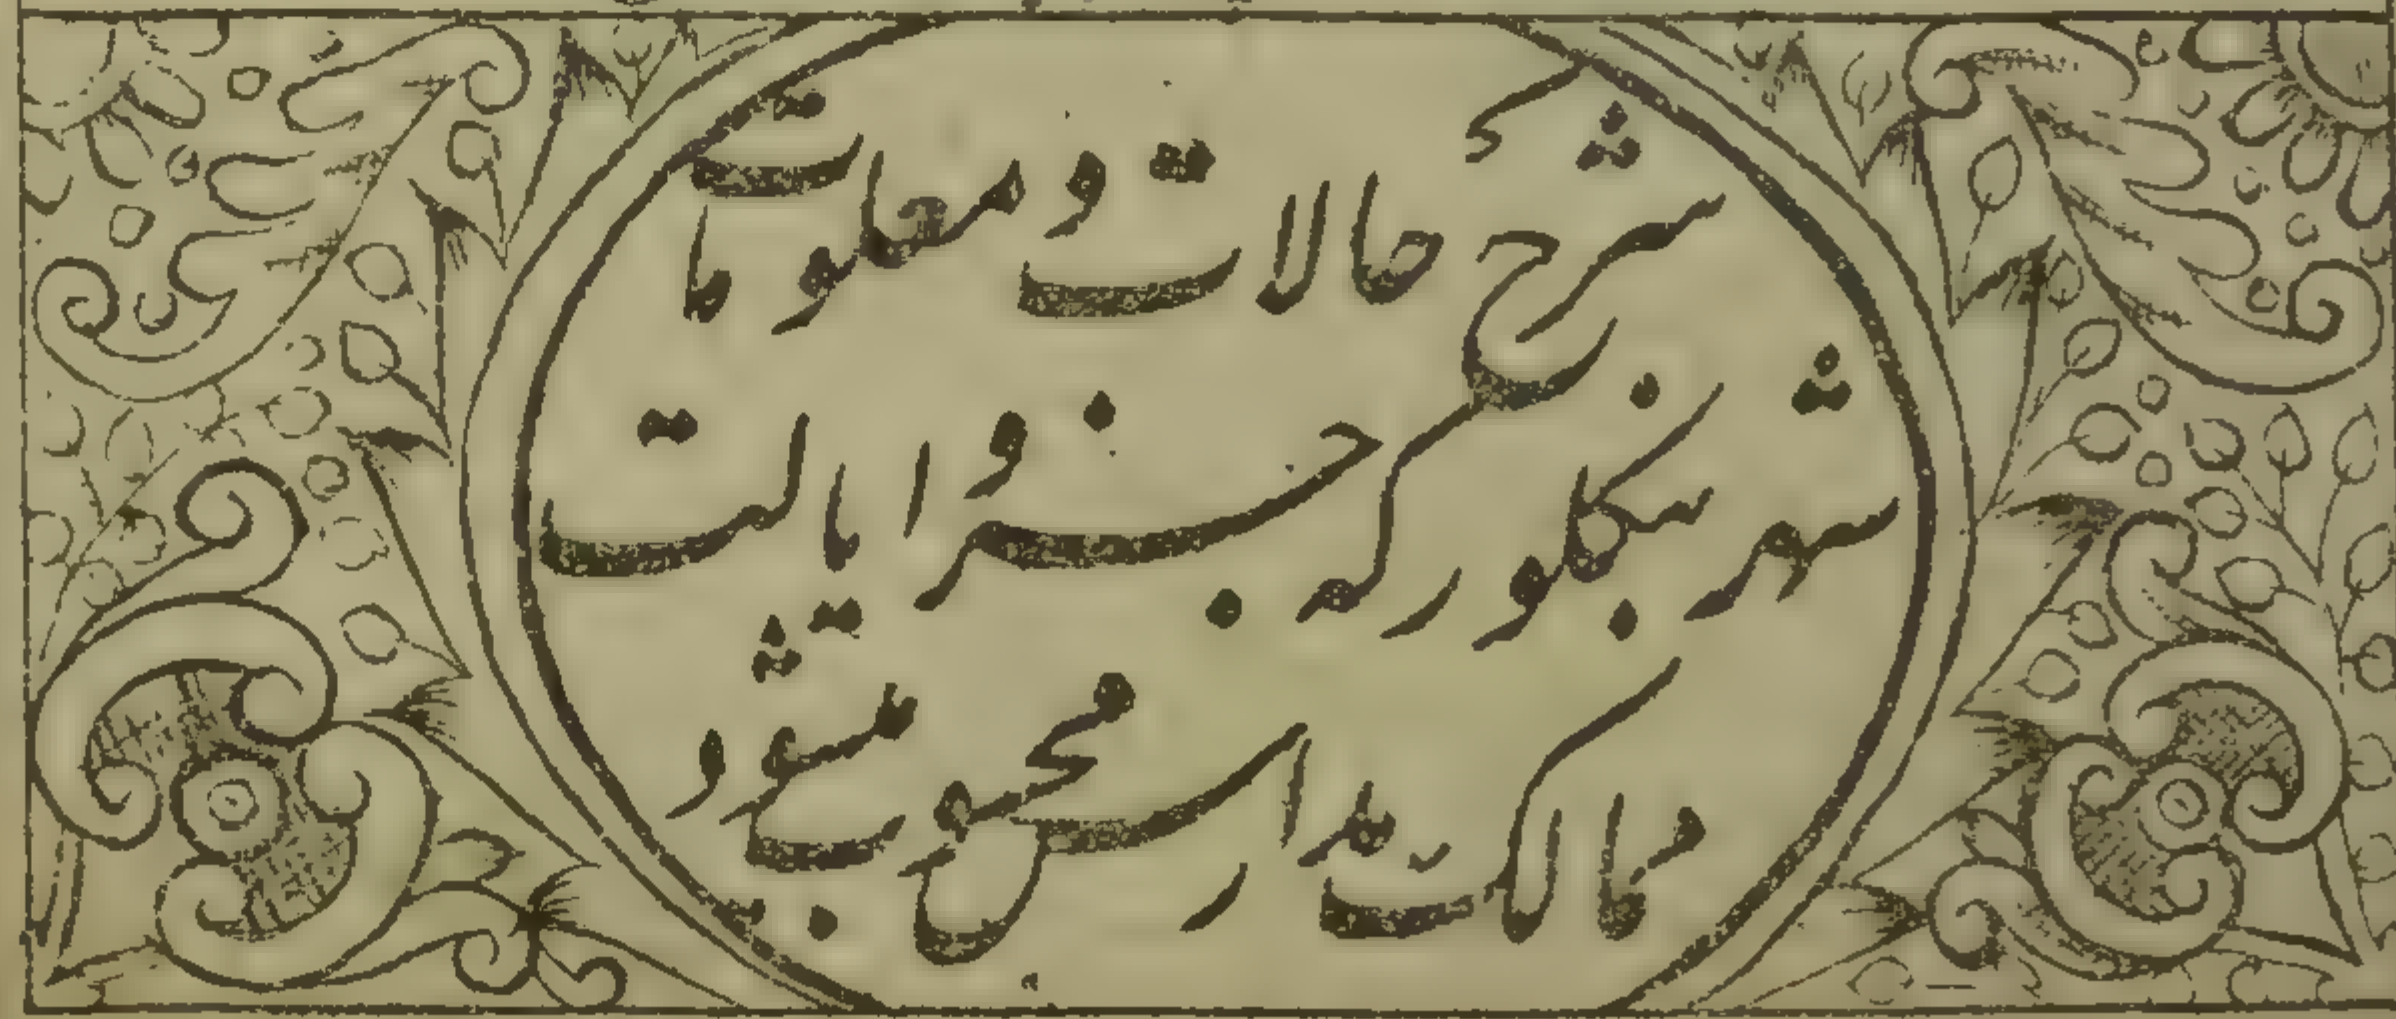 شرح حالات و معلومات
شهر بنگلور که جزو ایالت
ممالک مدراس محسوب میشود